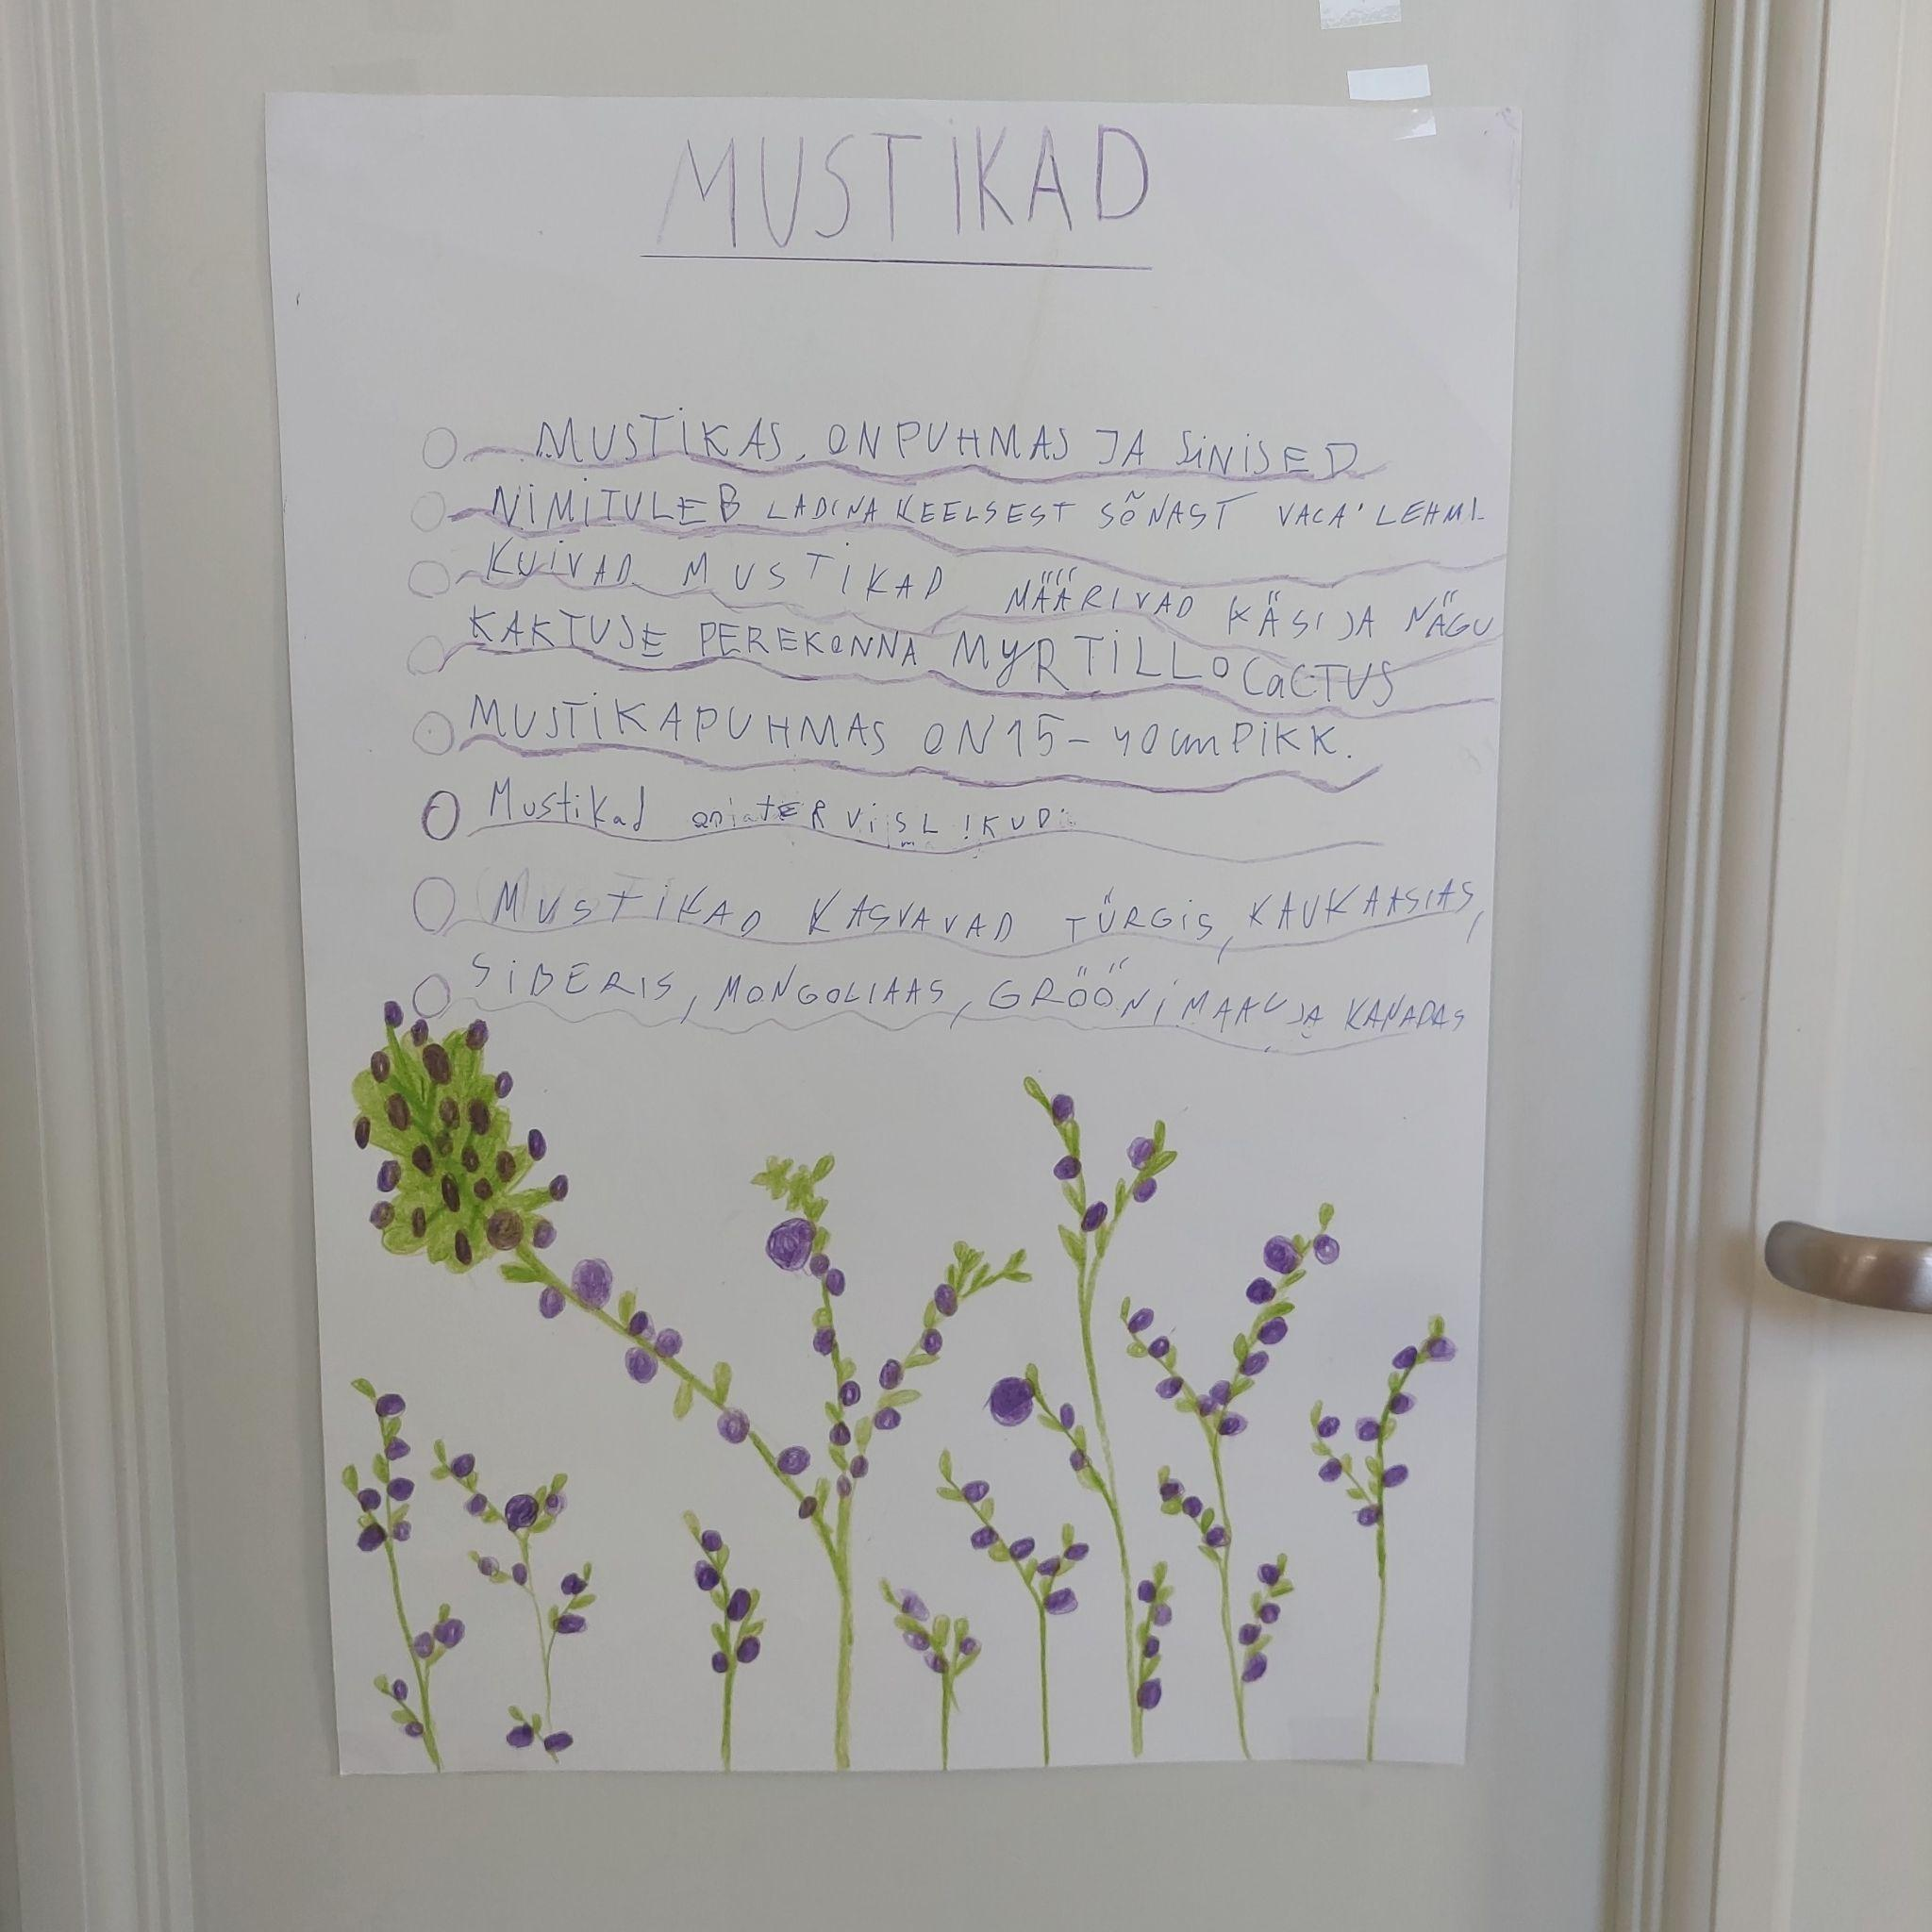 MUSTIKAD
MUSTIKAS, ON PUHMAS JA SINISED
NIMI TULEB LADINA KEELSEST SÕNAST VACA' LEHM
KUIVAD MUSTIKAD MÄÄRIVAD KÄSI JA NÄGU
KAKTUSE PEREKONNA MYRTILLOCaCTUS
MUSTIKAPUHMAS ON 15-40 cm PIKK.
Mustikad on TERVISLIKUD
MUSTIKAD KASVAVAD TÜRGIS, KAUKAASIAS,
SIBERIS, MONGOLIAAS, GRÖÖNIMAAL JA KANADAS